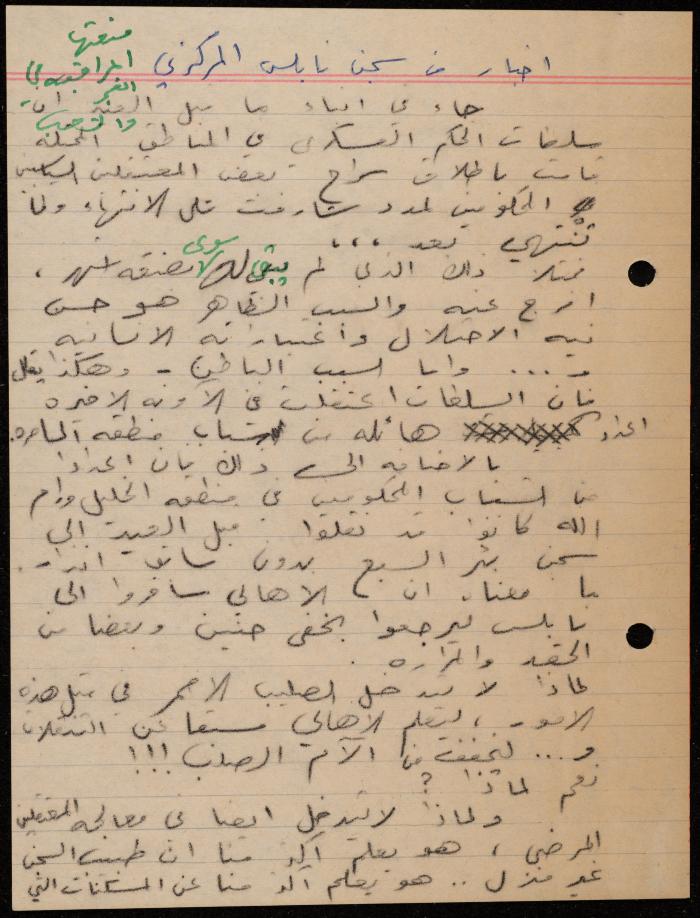 منعتها
المراقبة في
النشر
والتوزيع
اخبار من سجن نابلس المركزي
جاء في انباء ما قبل العيد ان
سلطات الحكم العسكري في المناطق المحتلة
قامت باطلاق سراح بعض المعتقلين السياسيين
المحكومين لمدد شارفت على الانتهاء ولما
تنتهي بعد ،،،
فمثلا ذاك الذي لم يبق له سوى بضعة اشهر ،
افرج عنه والسبب الظاهر هو حسن
نية الاحتلال واعتباراته الانسانية
و... واما السبب الباطن - وهكذا يقال
فان السلطات اعتقلت في الآونة الاخيرة
اعداد هائلة من شباب منطقة الناصرة.
بالاضافة الى ذلك بأن اعدادا
من الشباب المحكومين في منطقة الخليل ورام
الله كانوا قد نقلوا قبل العيد الى
سجن بئر السبع بدون سابق انذار.
ما معناه ان الاهالي سافروا الى
نابلس ليرجعوا بخفي حنين وبعضا من
الحقد والمرارة .
لماذا لا يتدخل الصليب الاحمر في مثل هذه
الامور ، ليعلم الاهالي مسبقا عن التنقلات
و... ليخفف من الآم الرصاب !!!
نعم لماذا ؟
ولماذا لا يتدخل ايضا في معالجة المعتقلين
المرضى ، هو يعلم اكثر منا ان طبيب السجن
غير منزل .. هو يعلم اكثر منا عن المسكنات التي